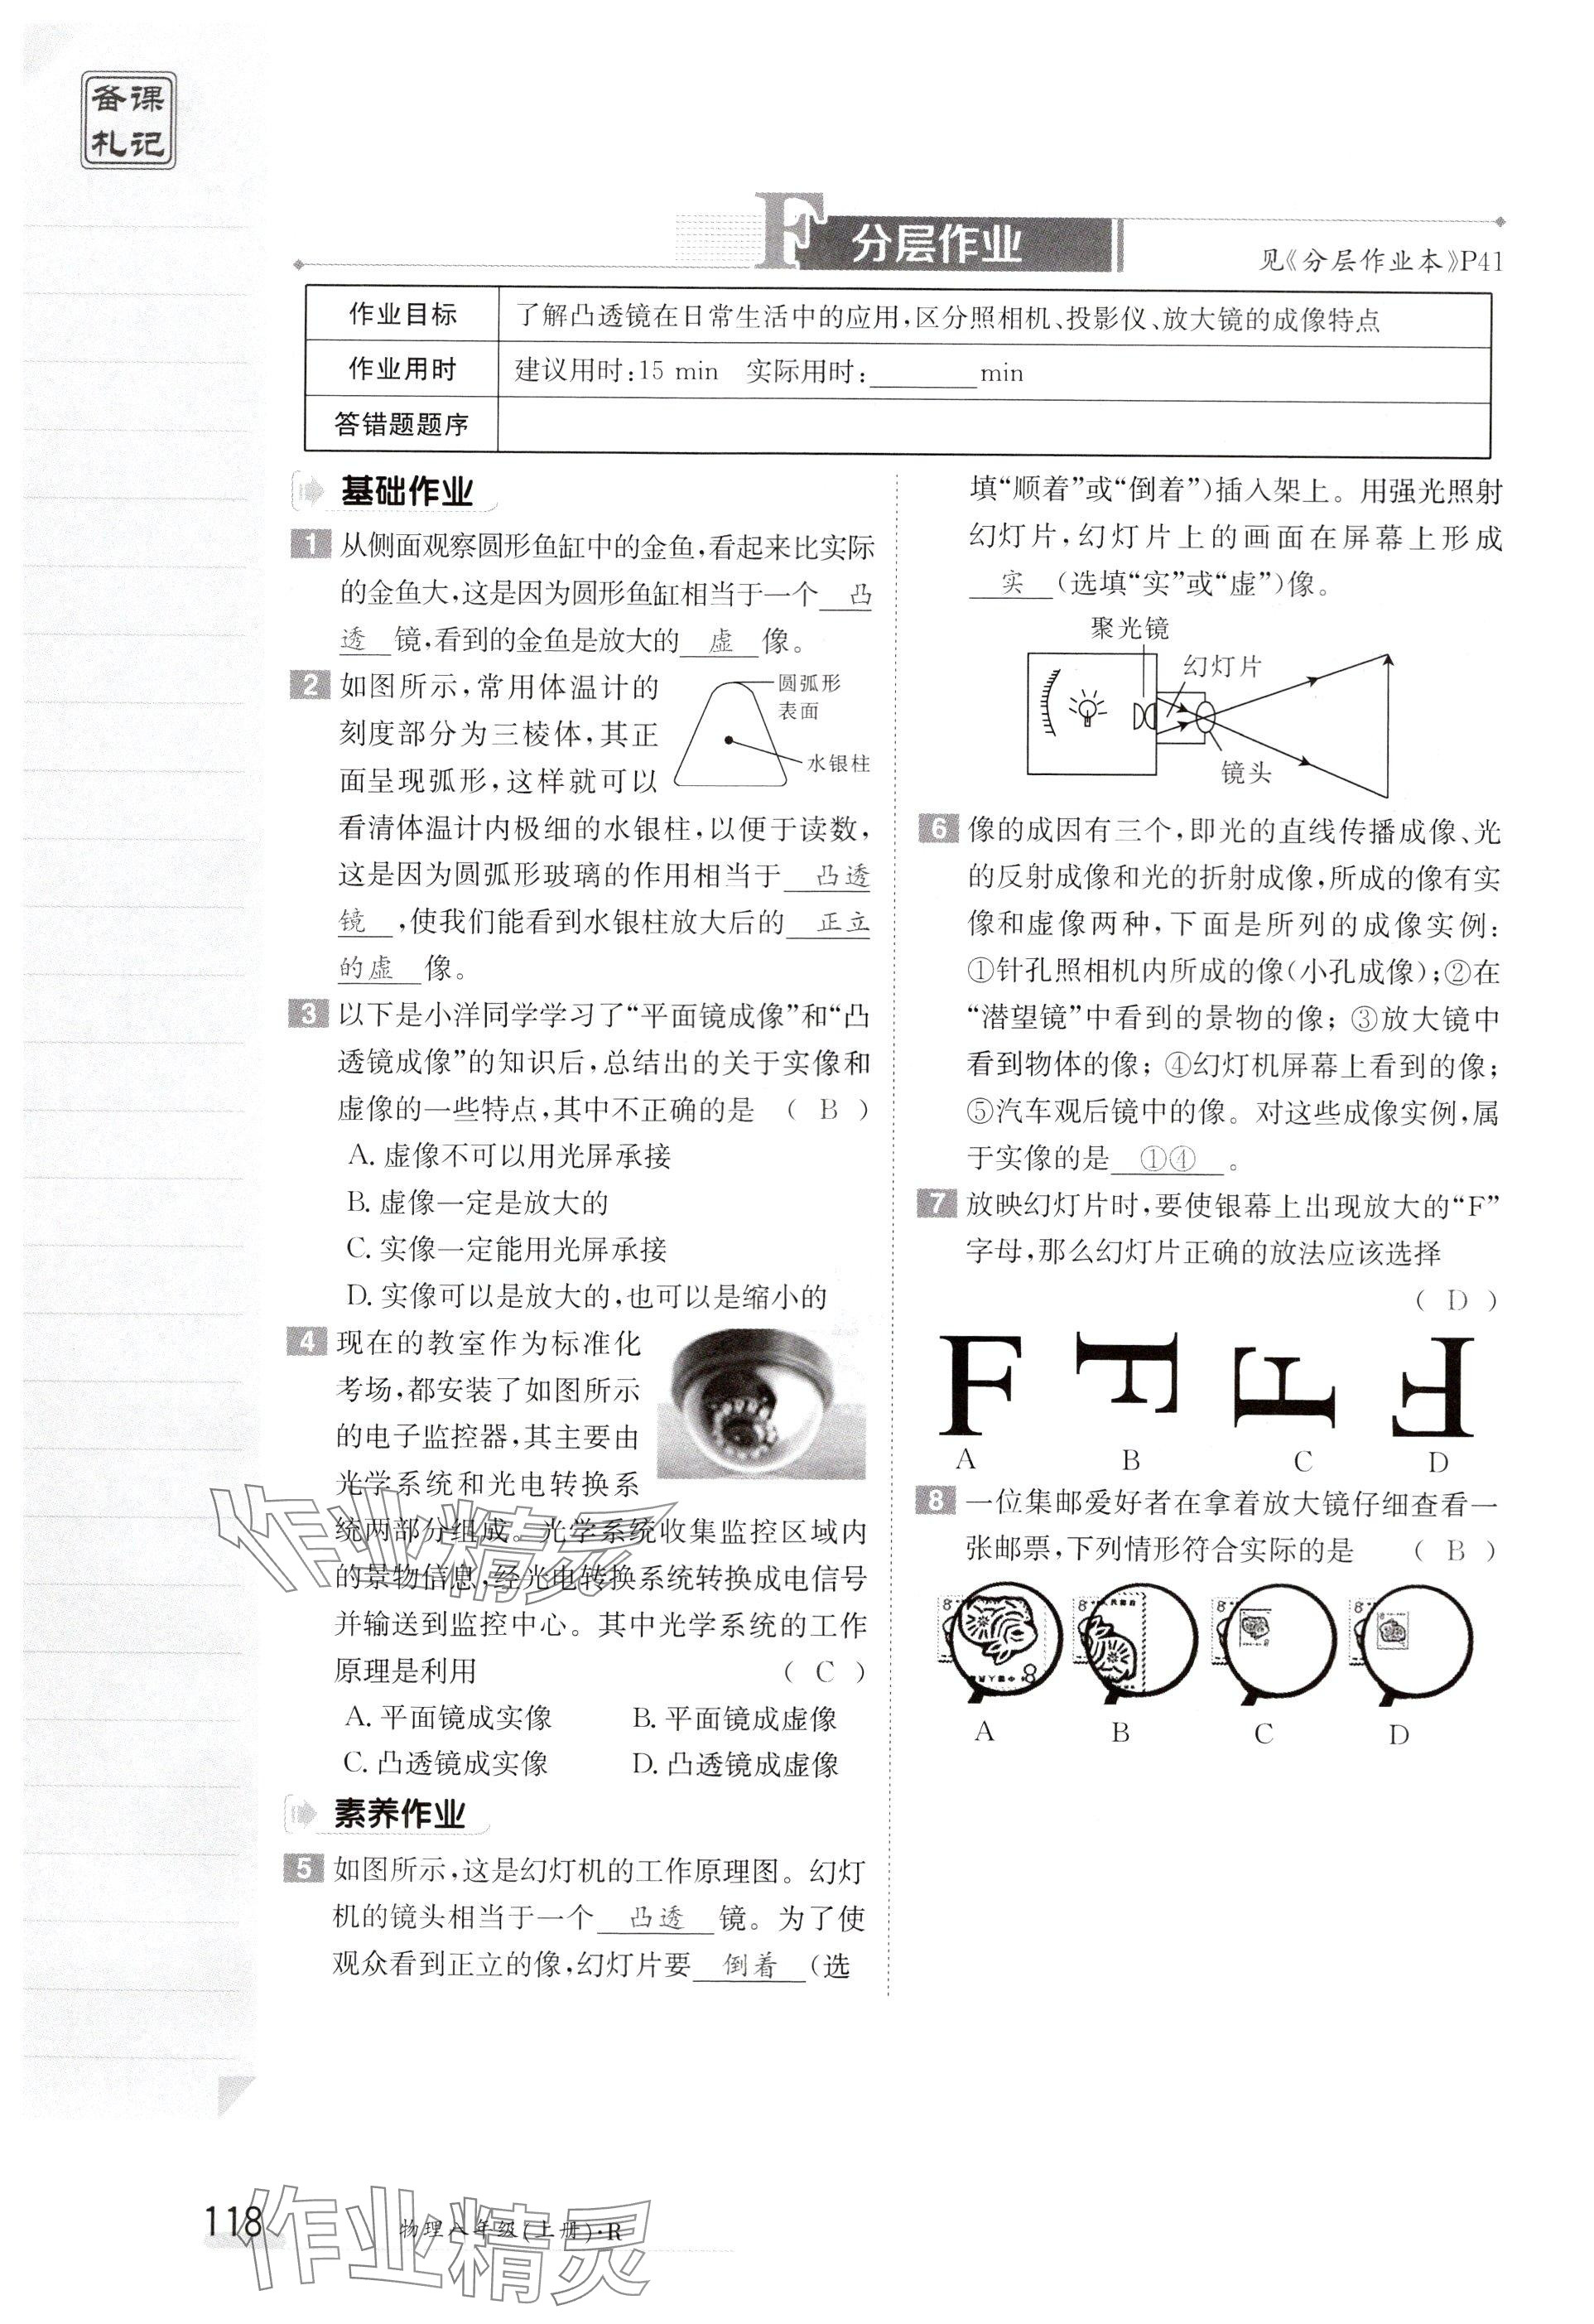 备课
札记
F 分层作业
见《分层作业本》P41
作业目标 了解凸透镜在日常生活中的应用,区分照相机、投影仪、放大镜的成像特点
作业用时 建议用时:15 min 实际用时:________min
答错题题序
基础作业
1 从侧面观察圆形鱼缸中的金鱼,看起来比实际
的金鱼大,这是因为圆形鱼缸相当于一个 凸
透 镜,看到的金鱼是放大的 虚 像。
2 如图所示,常用体温计的
刻度部分为三棱体,其正
面呈现弧形,这样就可以
圆弧形
表面
水银柱
看清体温计内极细的水银柱,以便于读数,
这是因为圆弧形玻璃的作用相当于 凸透
镜 ,使我们能看到水银柱放大后的 正立
的虚 像。
3 以下是小洋同学学习了“平面镜成像”和“凸
透镜成像”的知识后,总结出的关于实像和
虚像的一些特点,其中不正确的是 ( B )
A. 虚像不可以用光屏承接
B. 虚像一定是放大的
C. 实像一定能用光屏承接
D. 实像可以是放大的,也可以是缩小的
4 现在的教室作为标准化
考场,都安装了如图所示
的电子监控器,其主要由
光学系统和光电转换系
统两部分组成。光学系统收集监控区域内
的景物信息,经光电转换系统转换成电信号
并输送到监控中心。其中光学系统的工作
原理是利用 ( C )
A. 平面镜成实像 B. 平面镜成虚像
C. 凸透镜成实像 D. 凸透镜成虚像
素养作业
5 如图所示,这是幻灯机的工作原理图。幻灯
机的镜头相当于一个 凸透 镜。为了使
观众看到正立的像,幻灯片要 倒着 (选
填“顺着”或“倒着”)插入架上。用强光照射
幻灯片,幻灯片上的画面在屏幕上形成
实 (选填“实”或“虚”)像。
聚光镜
幻灯片
镜头
6 像的成因有三个,即光的直线传播成像、光
的反射成像和光的折射成像,所成的像有实
像和虚像两种,下面是所列的成像实例:
①针孔照相机内所成的像(小孔成像);②在
“潜望镜”中看到的景物的像;③放大镜中
看到物体的像;④幻灯机屏幕上看到的像;
⑤汽车观后镜中的像。对这些成像实例,属
于实像的是 ①④ 。
7 放映幻灯片时,要使银幕上出现放大的“F”
字母,那么幻灯片正确的放法应该选择
( D )
F F F F
A B C D
8 一位集邮爱好者在拿着放大镜仔细查看一
张邮票,下列情形符合实际的是 ( B )
8 8 8 8 8
A B C D
118 物理八年级(上册)·R
作业精灵
作业精灵